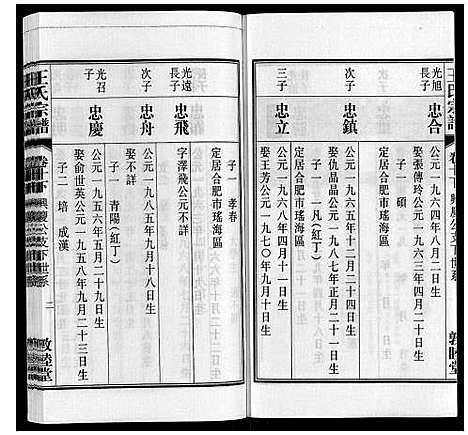 王氏宗譜
卷十下 興慶公支下世系
敦睦堂
光旭
長子
忠合
公元一九六四年八月二日生
娶張傳玲公元一九六三年四月二日生
子一 碩
定居合肥市瑤海區
次子
忠鎮
公元一九六五年十二月二十四日生
娶
公元一九八七年正月二十一日生
子一 一凡(紅丁)
定居合肥市瑤海區
三子
忠立
公元一九六八年四月十一日生
娶王芳公元一九七〇年九月十日生
子一 孝春
定居合肥市瑤海區
光遠
長子
忠飛
字澤飛公元不詳
次子
忠舟
公元一九八五年九月十八日生
娶不詳
子一 青陽(紅丁)
光召
子
忠慶
公元一九五六年五月二十九日生
娶俞世英公元一九五八年九月二十三日生
子二 培 成漢
王氏宗譜
卷十下 興慶公支下世系 二
敦睦堂